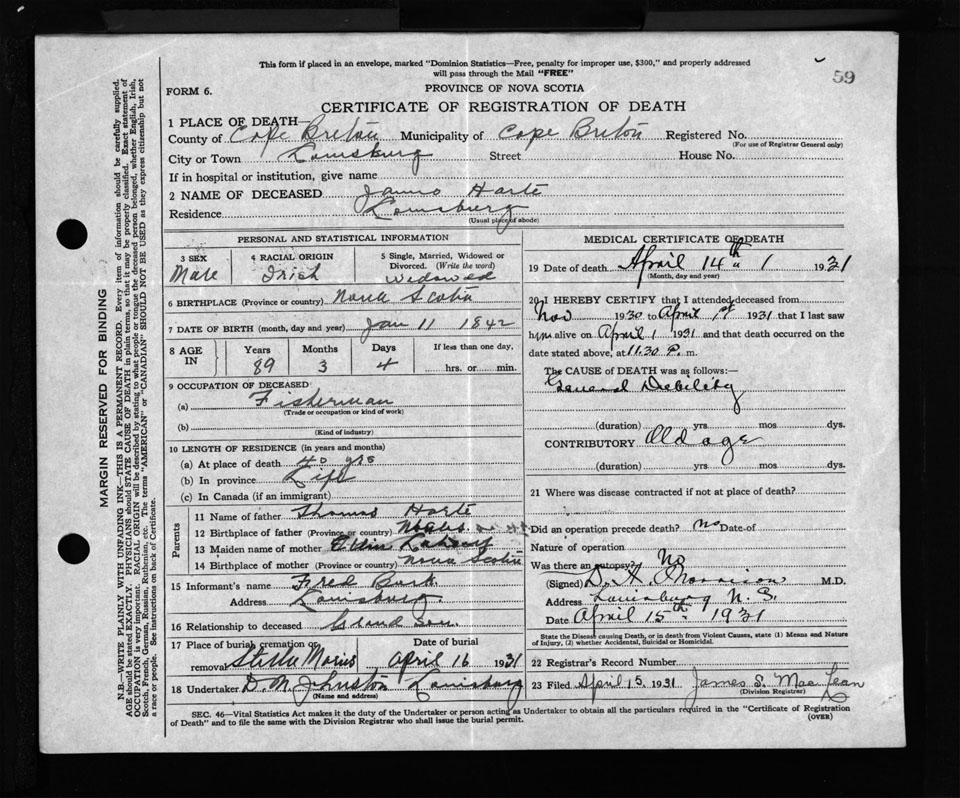 This form if placed in an envelope, marked "Dominion Statistics—Free, penalty for improper use, $300," and properly addressed
will pass through the Mail "FREE"
59
FORM 6.
PROVINCE OF NOVA SCOTIA
CERTIFICATE OF REGISTRATION OF DEATH
1 PLACE OF DEATH—
County of Cape Breton Municipality of Cape Breton Registered No.
(For use of Registrar General only)
City or Town Louisburg Street House No.
If in hospital or institution, give name
2 NAME OF DECEASED James Harte
Residence Louisburg
(Usual place of abode)
PERSONAL AND STATISTICAL INFORMATION
3 SEX 4 RACIAL ORIGIN 5 Single, Married, Widowed or
Divorced. (Write the word)
Male Irish Widowed
6 BIRTHPLACE (Province or country) Nova Scotia
7 DATE OF BIRTH (month, day and year) Jan 11 1842
8 AGE IN Years Months Days If less than one day,
89 3 4 hrs. or min.
9 OCCUPATION OF DECEASED
(a) Fisherman
(Trade or occupation or kind of work)
(b)
(Kind of industry)
10 LENGTH OF RESIDENCE (in years and months)
(a) At place of death 40 yrs
(b) In province Life
(c) In Canada (if an immigrant)
Parents
11 Name of father Thomas Harte
12 Birthplace of father (Province or country)
13 Maiden name of mother
14 Birthplace of mother (Province or country) Nova Scotia
15 Informant's name Fred
Address Louisburg.
16 Relationship to deceased Grand Son.
17 Place of burial cremation or Date of burial
removal Stella Maris April 16 1931
18 Undertaker D. M. Johnston Louisburg
(Name and address)
MEDICAL CERTIFICATE OF DEATH
19 Date of death April 14th 1931
(Month, day and year)
20 I HEREBY CERTIFY that I attended deceased from
Nov 1930 to April 1st 1931 that I last saw
him alive on April 1 1931 and that death occurred on the
date stated above, at 11.30 P. m.
The CAUSE of DEATH was as follows:—
General Debility
(duration) yrs mos dys.
CONTRIBUTORY Old age
(duration) yrs mos dys.
21 Where was disease contracted if not at place of death?
Did an operation precede death? no Date of
Nature of operation
Was there an autopsy? No
(Signed) D. A. Morrison M.D.
Address Louisburg N.S.
Date April 15th 1931
State the Disease causing Death, or in death from Violent Causes, state (1) Means and Nature
of Injury, (2) whether Accidental, Suicidal or Homicidal.
22 Registrar's Record Number
23 Filed April 15, 1931 James S. MacLean
(Division Registrar)
SEC. 46—Vital Statistics Act makes it the duty of the Undertaker or person acting as Undertaker to obtain all the particulars required in the "Certificate of Registration
of Death" and to file the same with the Division Registrar who shall issue the burial permit.
(OVER)
MARGIN RESERVED FOR BINDING
N.B.—WRITE PLAINLY WITH UNFADING INK—THIS IS A PERMANENT RECORD. Every item of information should be carefully supplied.
AGE should be stated EXACTLY. PHYSICIANS should STATE CAUSE OF DEATH in plain terms, so that it may be properly classified. Exact statement of
OCCUPATION is very important. RACIAL ORIGIN will be described by stating to what people or tongue the deceased person belonged, whether English, Irish,
Scotch, French, German, Russian, Ruthenian, etc. The terms "AMERICAN" or "CANADIAN" SHOULD NOT BE USED as they express citizenship but not
a race or people. See instructions on back of Certificate.